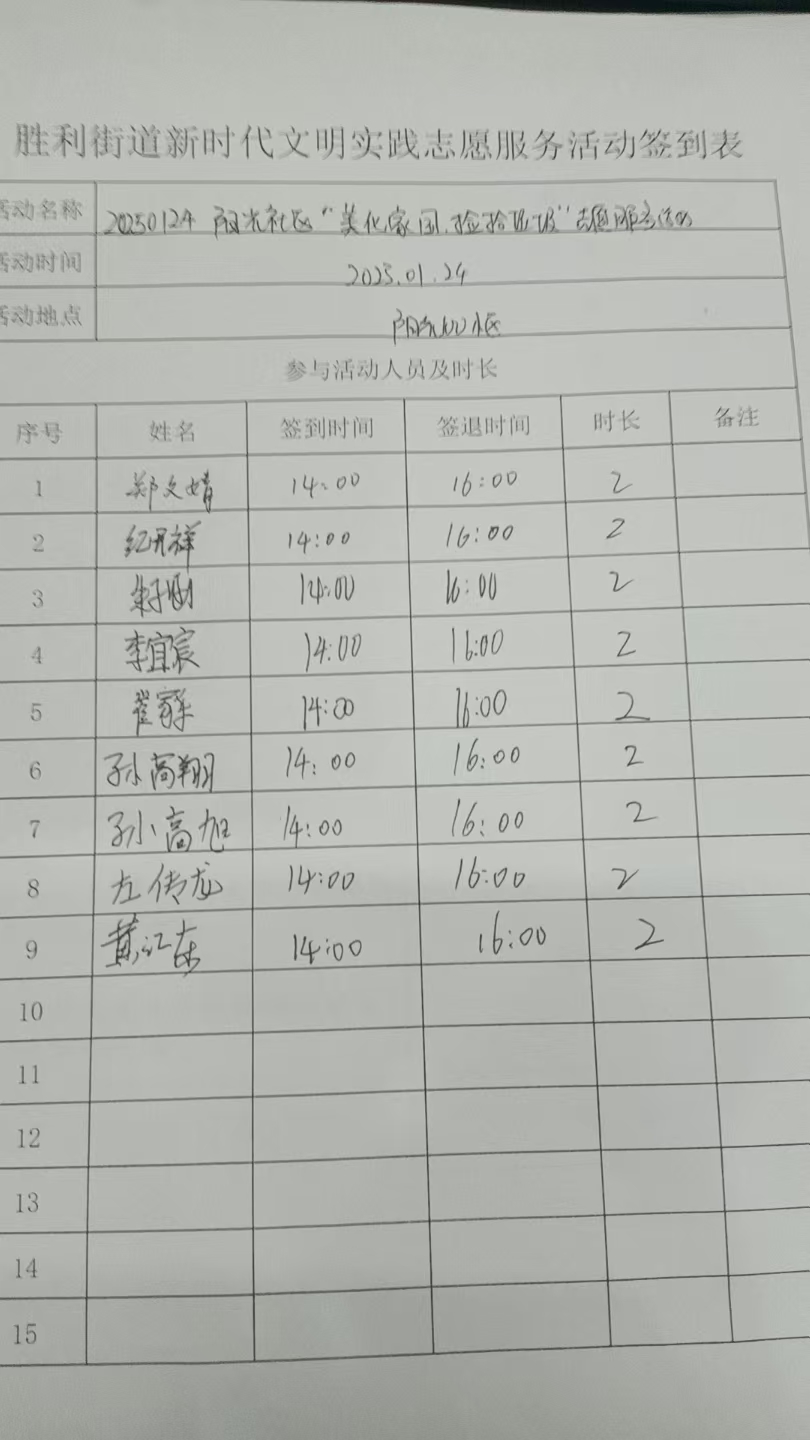 胜利街道新时代文明实践志愿服务活动签到表
活动名称 20250124 阳光社区“美化家园,捡拾垃圾”志愿服务活动
活动时间 2025.01.24
活动地点 阳光100小区
参与活动人员及时长
序号 姓名 签到时间 签退时间 时长 备注
1 郑文婧 14:00 16:00 2
2 纪开祥 14:00 16:00 2
3 14:00 16:00 2
4 李宜宸 14:00 16:00 2
5 崔 14:00 16:00 2
6 孙高翔 14:00 16:00 2
7 孙高旭 14:00 16:00 2
8 左传龙 14:00 16:00 2
9 黄江东 14:00 16:00 2
10
11
12
13
14
15